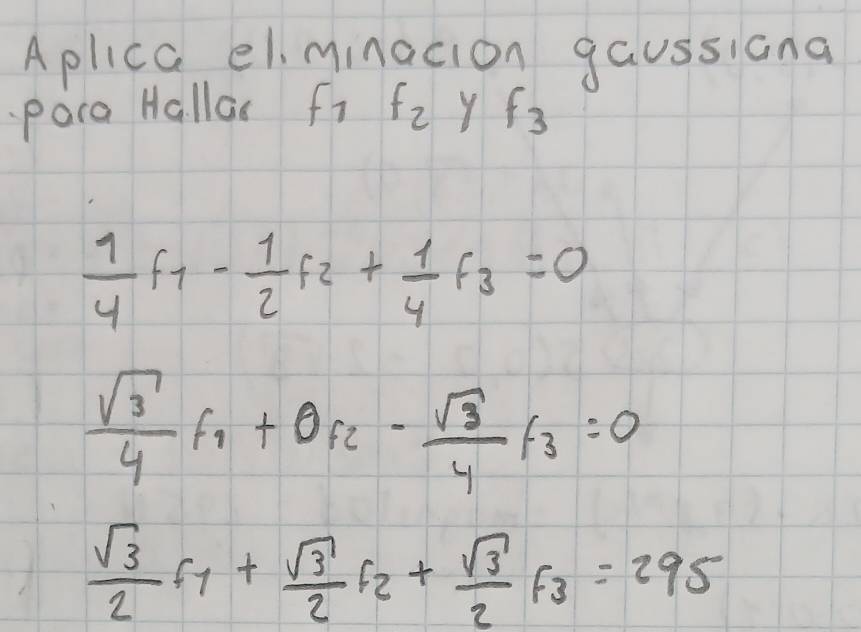 Aplica eliminacion gaussiana
para Hallar f1 f2 y f3
1/4 f1 - 1/2 f2 + 1/4 f3 = 0
√3/4 f1 + 0f2 - √3/4 f3 = 0
√3/2 f1 + √3/2 f2 + √3/2 f3 = 295